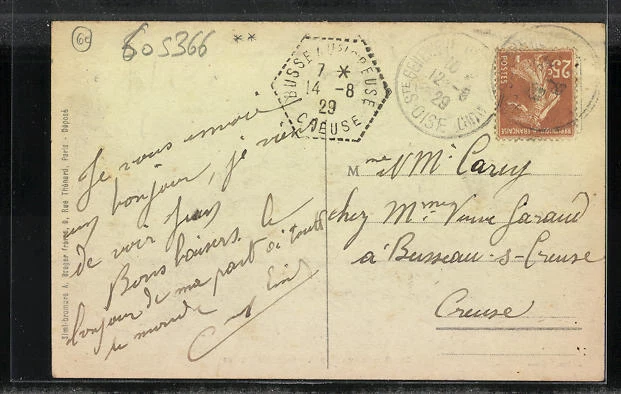 6e
60S366 **
BUSSEAU S/CREUSE
7 *
14 -8
29
CREUSE
12 -8
29
S.-OISE
POSTES
25c
REPUBLIQUE FRANÇAISE
Je vous envoie
un bonjour, je viens
de voir
Bons baisers le
bonjour de ma part à toute
le monde
M me
chez Mme Veuve Garaud
à Busseau-s-Creuse
Creuse
Simili-bromure A. Breger frères, 9, Rue Thénard, Paris - Déposé